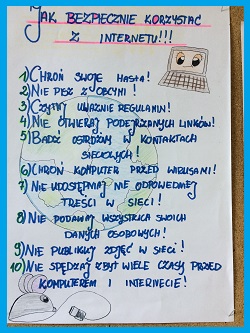 JAK BEZPIECZNIE KORZYSTAĆ
Z INTERNETU!!!
1) CHROŃ SWOJE HASŁA!
2) NIE PISZ Z OBCYMI!
3) CZYTAJ UWAŻNIE REGULAMIN!
4) NIE OTWIERAJ PODEJRZANYCH LINKÓW!
5) BĄDŹ OSTROŻNY W KONTAKTACH
SIECIOWYCH!
6) CHROŃ KOMPUTER PRZED WIRUSAMI!
7) NIE UDOSTĘPNIAJ NIE ODPOWIEDNIEJ
TREŚCI W SIECI!
8) NIE PODAWAJ WSZYSTKICH SWOICH
DANYCH OSOBOWYCH!
9) NIE PUBLIKUJ ZDJĘĆ W SIECI!
10) NIE SPĘDZAJ ZBYT WIELE CZASU PRZED
KOMPUTEREM I INTERNECIE!